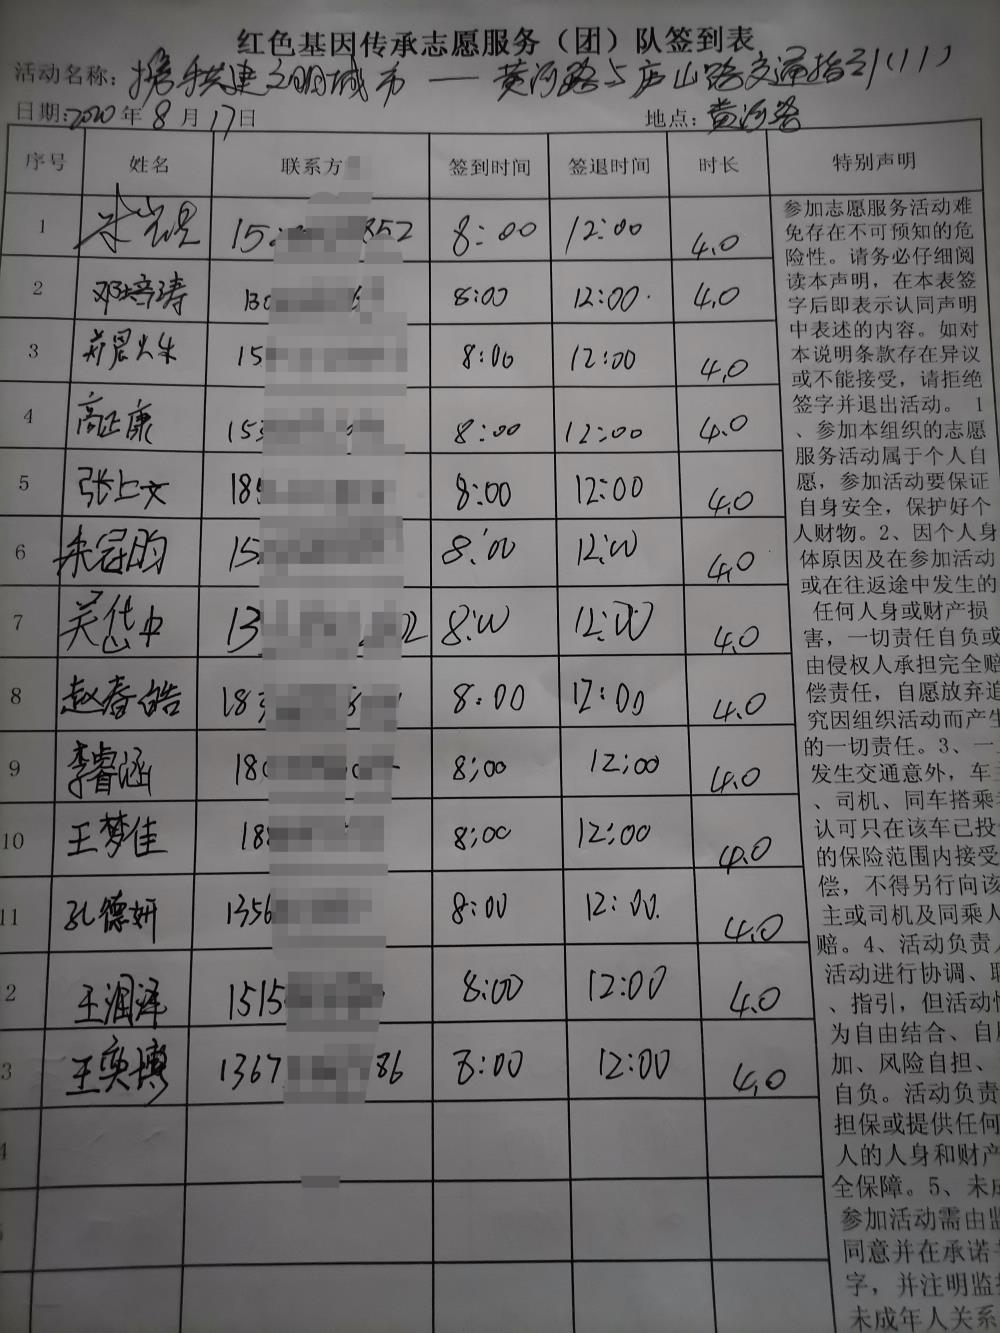 红色基因传承志愿服务（团）队签到表
活动名称：携手共建文明城市——黄河路与庐山路交通指引（11）
日期：2020年8月17日 地点：黄河路
序号 姓名 联系方 签到时间 签退时间 时长 特别声明
1 15 352 8:00 12:00 4.0
2 邓培涛 130 8:00 12:00 4.0
3 15 8:00 12:00 4.0
4 高正康 153 8:00 12:00 4.0
5 张上文 189 8:00 12:00 4.0
6 朱冠昀 15 8:00 12:00 4.0
7 吴岱中 13 02 8:00 12:00 4.0
8 赵春皓 183 8:00 12:00 4.0
9 李睿涵 180 8:00 12:00 4.0
10 王梦佳 188 8:00 12:00 4.0
11 孔德妍 1356 8:00 12:00 4.0
2 王润泽 1515 8:00 12:00 4.0
3 王奕博 1367 86 8:00 12:00 4.0
4
参加志愿服务活动难
免存在不可预知的危
险性。请务必仔细阅
读本声明，在本表签
字后即表示认同声明
中表述的内容。如对
本说明条款存在异议
或不能接受，请拒绝
签字并退出活动。 1
、参加本组织的志愿
服务活动属于个人自
愿，参加活动要保证
自身安全，保护好个
人财物。2、因个人身
体原因及在参加活动
或在往返途中发生的
任何人身或财产损
害，一切责任自负或
由侵权人承担完全赔
偿责任，自愿放弃追
究因组织活动而产生
的一切责任。3、一
发生交通意外，车
、司机、同车搭乘
认可只在该车已投
的保险范围内接受
偿，不得另行向该
主或司机及同乘人
赔。4、活动负责人
活动进行协调、联
、指引，但活动
为自由结合、自
加、风险自担、
自负。活动负责
担保或提供任何
人的人身和财产
全保障。5、未成
参加活动需由监
同意并在承诺
字，并注明监
未成年人关系